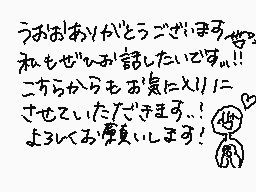 うおおありがとうございます
私もぜひお話したいです..!!
こちらからもお気に入りに
させていただきます..!
よろしくお願いします!